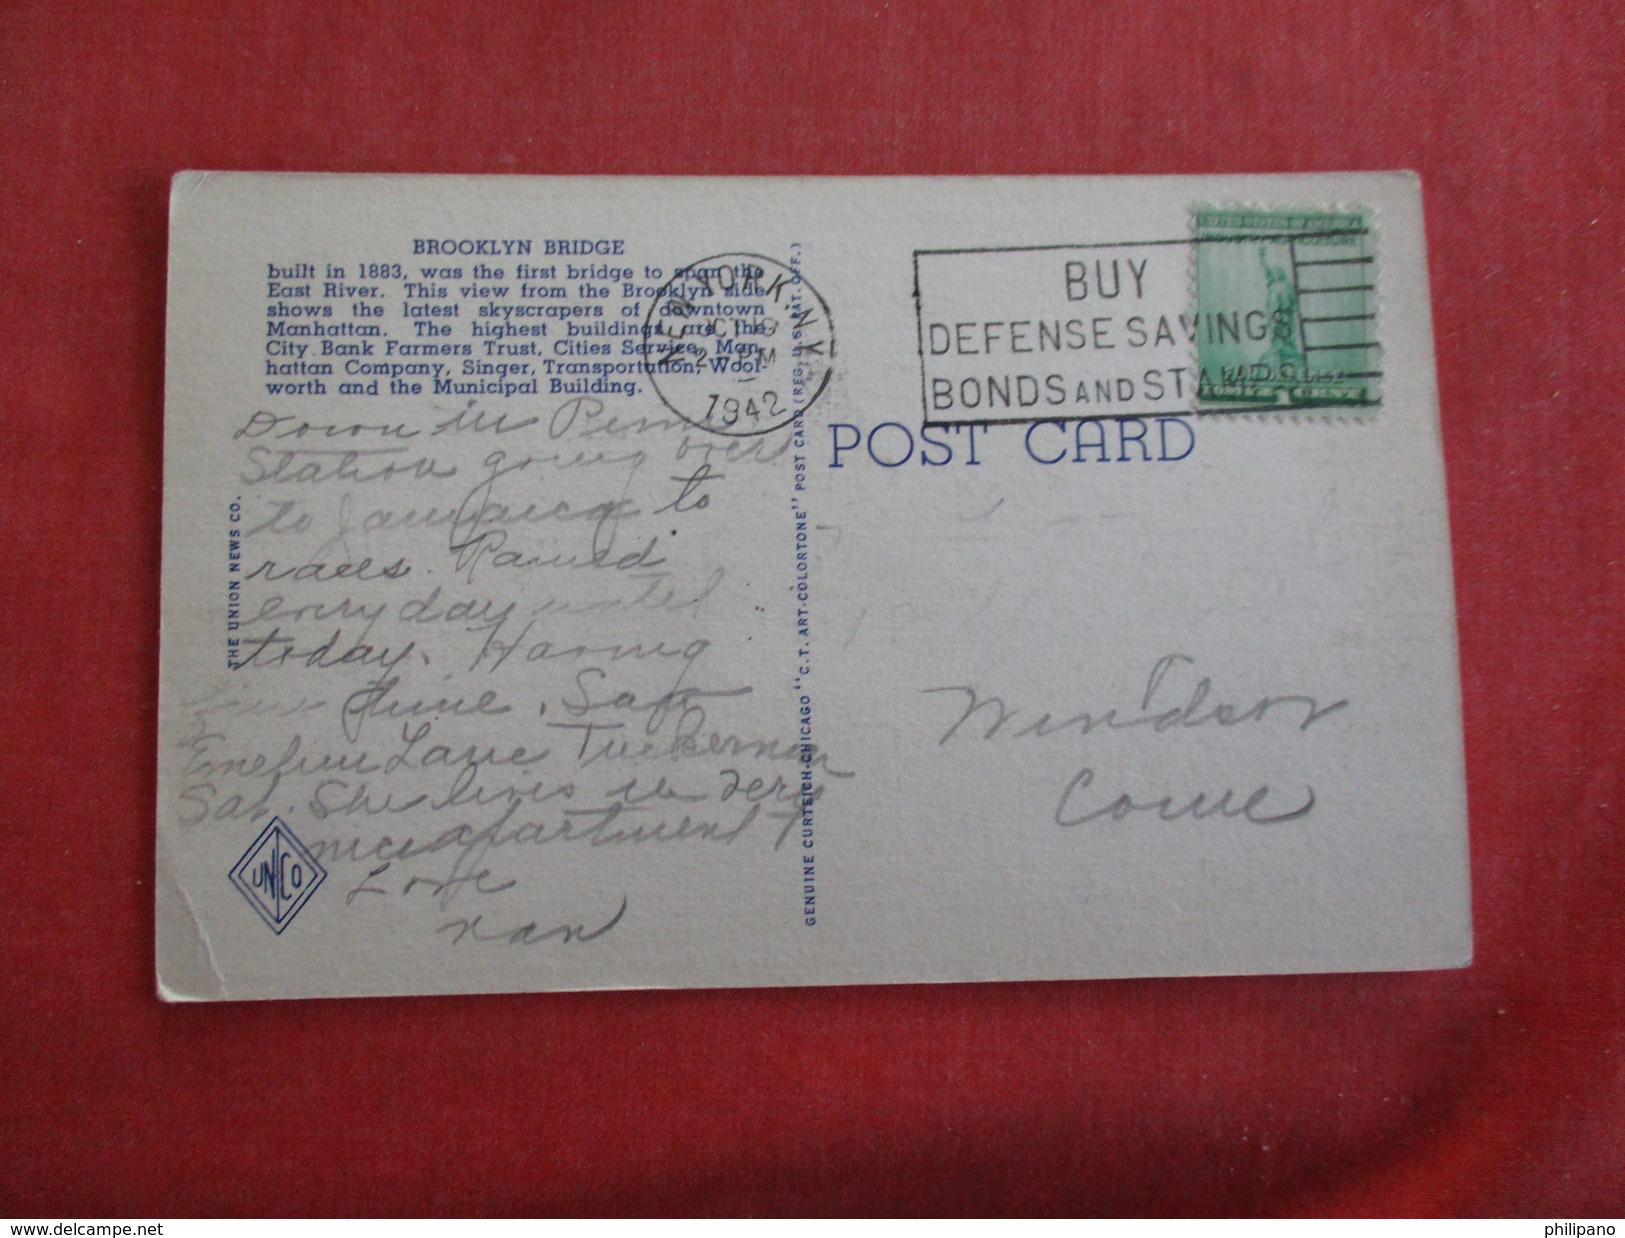 BROOKLYN BRIDGE
built in 1883, was the first bridge to span the
East River. This view from the Brooklyn side
shows the latest skyscrapers of downtown
Manhattan. The highest buildings are the
City Bank Farmers Trust, Cities Service, Man-
hattan Company, Singer, Transportation, Wool-
worth and the Municipal Building.
Down in Penn
Station going over
to Jamaica to
races. Rained
everyday until
today. Having
fine time. Saw
Lane Tuckerman
Sat. She lives in very
nice apartment
Love
Nan
THE UNION NEWS CO.
UN CO
GENUINE CURTEICH-CHICAGO "C.T. ART-COLORTONE" POST CARD (REG. U.S. PAT. OFF.)
NEW YORK, N.Y.
OCT 19
2 - PM
1942
BUY
DEFENSE SAVINGS
BONDS AND STAMPS
UNITED STATES OF AMERICA
POST CARD
Windsor
Conne
delcampe.net
philipano